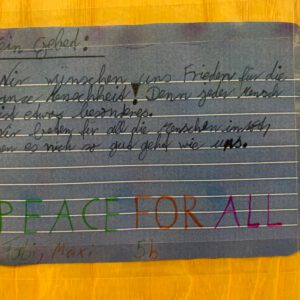 ein gebed:
Wir wünschen uns Frieden für die
anze Menschheit! Denn jeder Mensch
ist etwas besonderes.
Wir beten für all die Menschen
en es nich so gut geht wie uns.
PEACE FOR ALL
Tobi, Maxi 5b